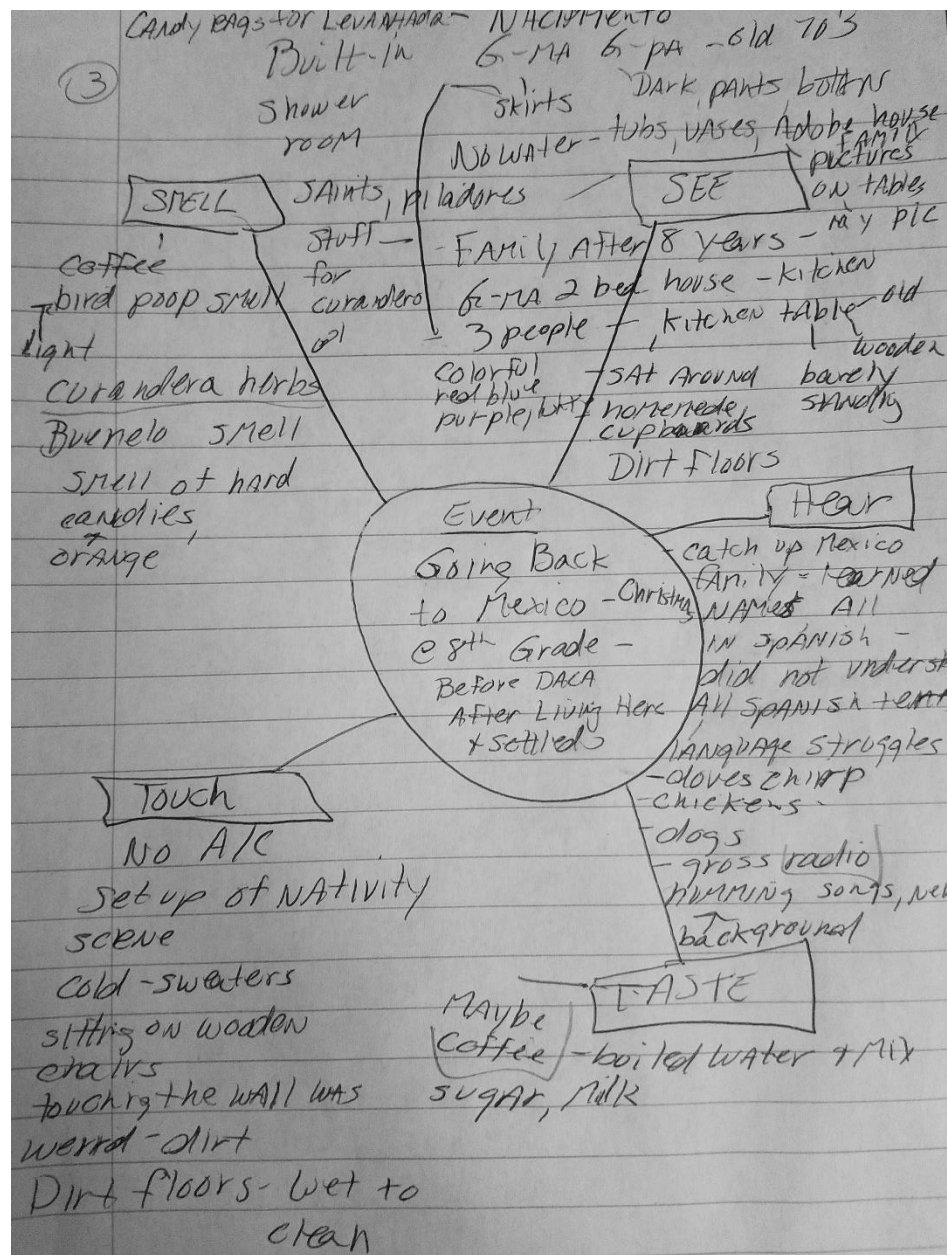 Candy bags for Levantada - NACIMENTO
Built-in G-MA G-PA - old 70's
3
Shower room
skirts DARK pants botton
No water - tubs, vases, Adobe house
FAMILY pictures on tables - my pic
SMELL
SAints, piladores
stuff for curandero
SEE
- FAMILY After 8 years -
G-MA 2 bed house - kitchen
3 people - kitchen table - old
wooden
barely standing
colorful
red blue
purple,
- SAt Around
homemade cupboards
Dirt floors
coffee
bird poop smell
light
curandera herbs
Buenelo smell
smell of hard
candies,
orange
Event
Going Back
to Mexico - Christmas
@ 8th Grade -
Before DACA
After Living Here
+ settled
Hear
- catch up Mexico
family - learned
NAMES All
IN SPANISH -
did not underst
All SPANISH
LANGUAGE struggles
- doves chirp
- chickens -
- dogs
- gross radio
humming songs,
background
Touch
No A/C
Set up of NAtivity
scene
cold - sweaters
sitting on wooden
chairs
touching the WAll WAS
weird - dirt
Dirt floors - wet to
clean
TASTE
MAybe
coffee - boiled water + Mix
sugar, Milk